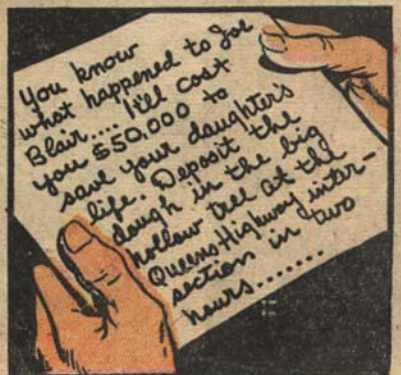 You know
what happened to Joe
Blair.... It'll cost
you $50,000 to
save your daughter's
life. Deposit the
dough in the big
hollow tree at the
Queens Highway inter-
section in two
hours.......